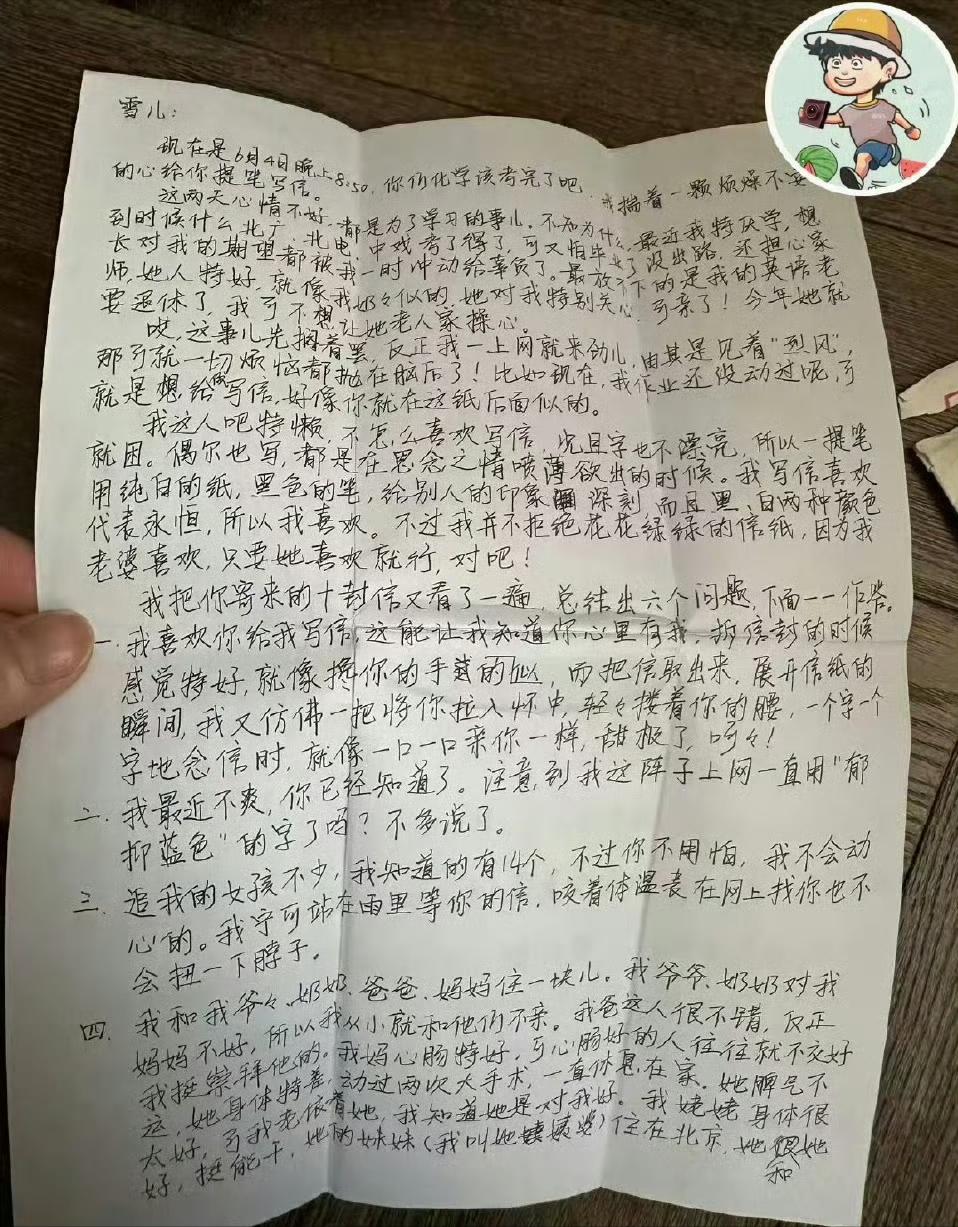 雪儿：
现在是6月4日晚上8:50，你们化学该考完了吧，我揣着一颗烦燥不安
的心给你提笔写信。
这两天心情不好，都是为了学习的事儿。不知为什么，最近我特厌学，想
到时候什么北广、北电、中戏考了得了，可又怕毕业了没出路，还担心家
长对我的期望都被我一时冲动给辜负了。最放不下的是我的英语老
师，她人特好，就像我奶々似的，她对我特别关心，可亲了！今年她就
要退休了，我可不想让她老人家操心。
哎，这事儿先搁着罢，反正我一上网就来劲儿，由其是见着“烈风”，
那可就一切烦恼都抛在脑后了！比如现在，我作业还没动过呢，可
就是想给你写信，好像你就在这纸后面似的。
我这人吧特懒，不怎么喜欢写信，况且字也不漂亮，所以一提笔
就困。偶尔也写，都是在思念之情喷薄欲出的时候。我写信喜欢
用纯白的纸，黑色的笔，给别人的印象深刻，而且黑、白两种颜色
代表永恒，所以我喜欢。不过我并不拒绝花花绿绿的信纸，因为我
老婆喜欢，只要她喜欢就行，对吧！
我把你寄来的十封信又看了一遍，总结出六个问题，下面一一作答。
一.我喜欢你给我写信，这能让我知道你心里有我，拆信封的时候
感觉特好，就像搀你的手似的，而把信取出来，展开信纸的
瞬间，我又仿佛一把将你拉入怀中，轻々搂着你的腰，一个字一个
字地念信时，就像一口一口亲你一样，甜极了，呵々！
二.我最近不爽，你已经知道了。注意到我这阵子上网一直用“郁
抑蓝色”的字了吗？不多说了。
三.追我的女孩不少，我知道的有14个，不过你不用怕，我不会动
心的。我宁可站在雨里等你的信，咬着体温表在网上找你也不
会扭一下脖子。
四.我和我爷々、奶奶、爸爸、妈妈住一块儿。我爷爷、奶奶对我
妈妈不好，所以我从小就和他们不亲。我爸这人很不错，反正
我挺崇拜他的。我妈心肠特好，可心肠好的人往往就不交好
运，她身体特差，动过两次大手术，一直休息在家。她脾气不
太好，可我老依着她，我知道她是对我好。我姥姥身体很
好，挺能干，她的妹妹（我叫她姨婆）住在北京，她和她